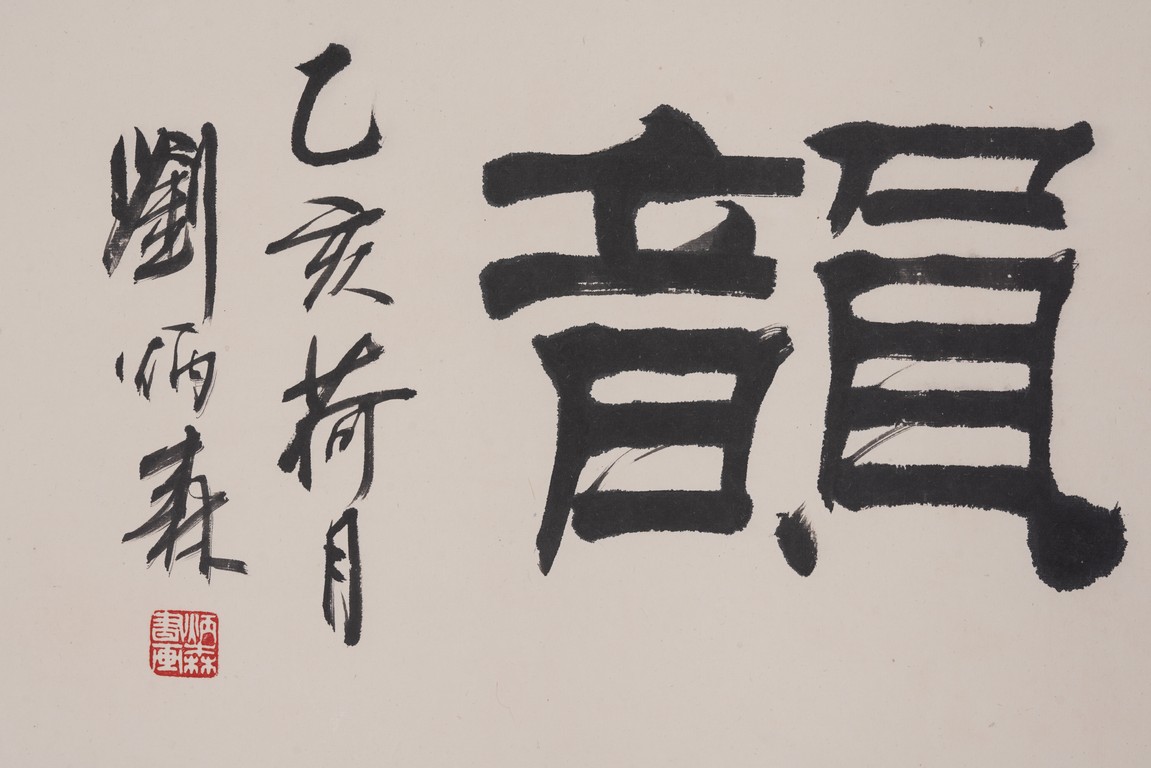 韻
乙亥荷月
劉炳森
炳森
書画